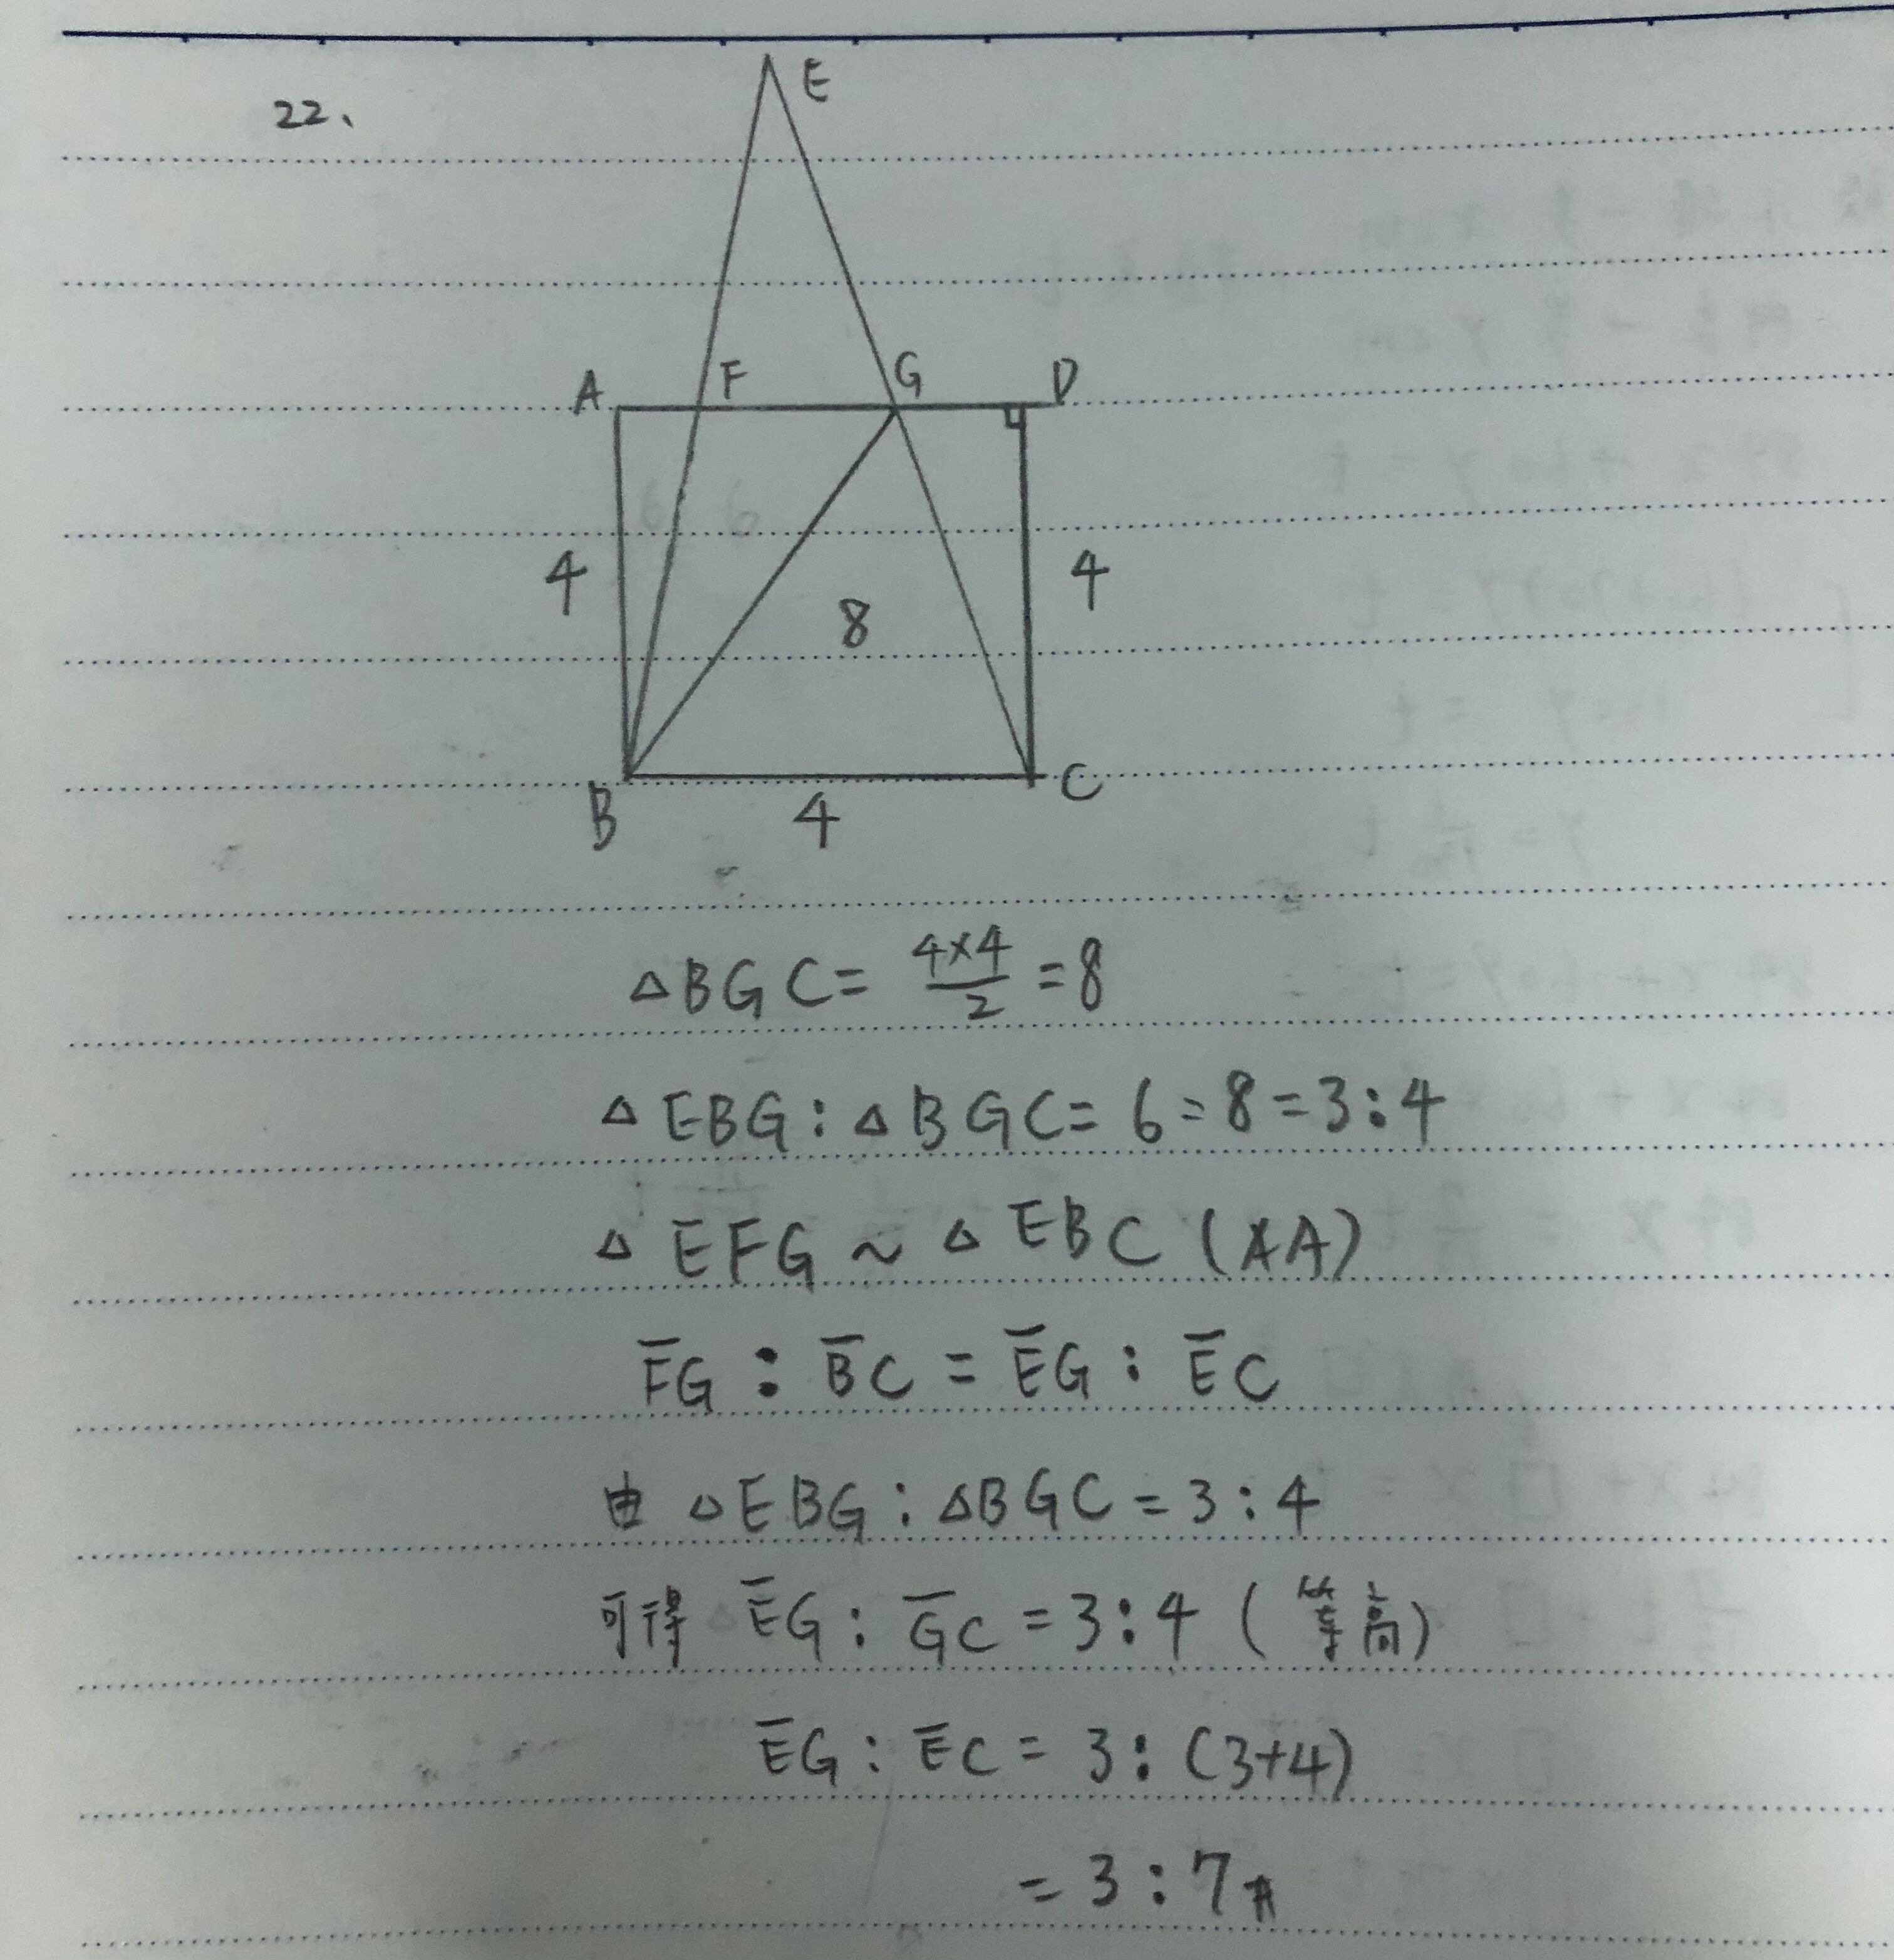 22、
E
A F G D
4 8 4
B 4 C
△BGC = \frac{4×4}{2} = 8
△EBG : △BGC = 6 = 8 = 3 : 4
△EFG ~ △EBC (AA)
\overline{F}G : \overline{B}C = \overline{E}G : \overline{E}C
由 △EBG : △BGC = 3 : 4
可得 \overline{E}G : \overline{G}C = 3 : 4 (等高)
\overline{E}G : \overline{E}C = 3 : (3+4)
= 3 : 7 #